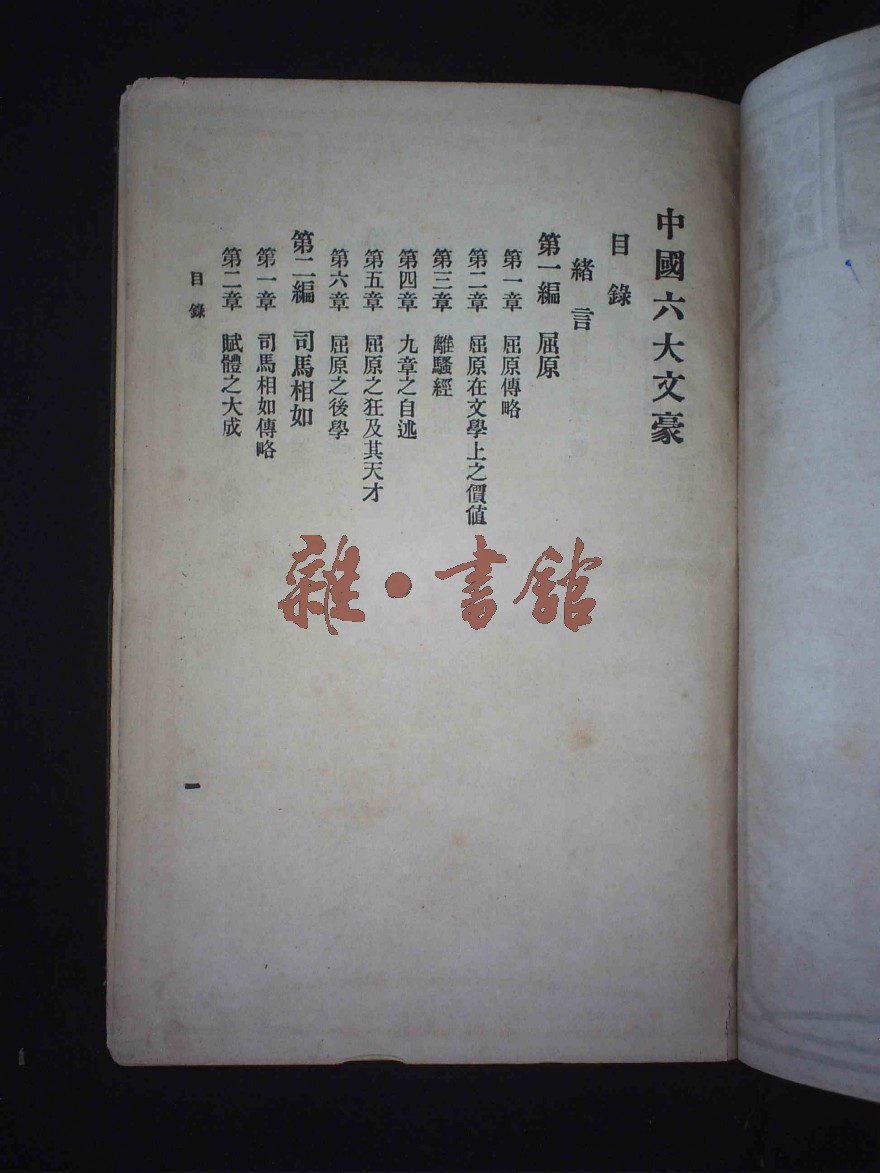 中國六大文豪
目錄
緒言
第一編 屈原
第一章 屈原傳略
第二章 屈原在文學上之價値
第三章 離騷經
第四章 九章之自述
第五章 屈原之狂及其天才
第六章 屈原之後學
第二編 司馬相如
第一章 司馬相如傳略
第二章 賦體之大成
目錄
一
雜·書館